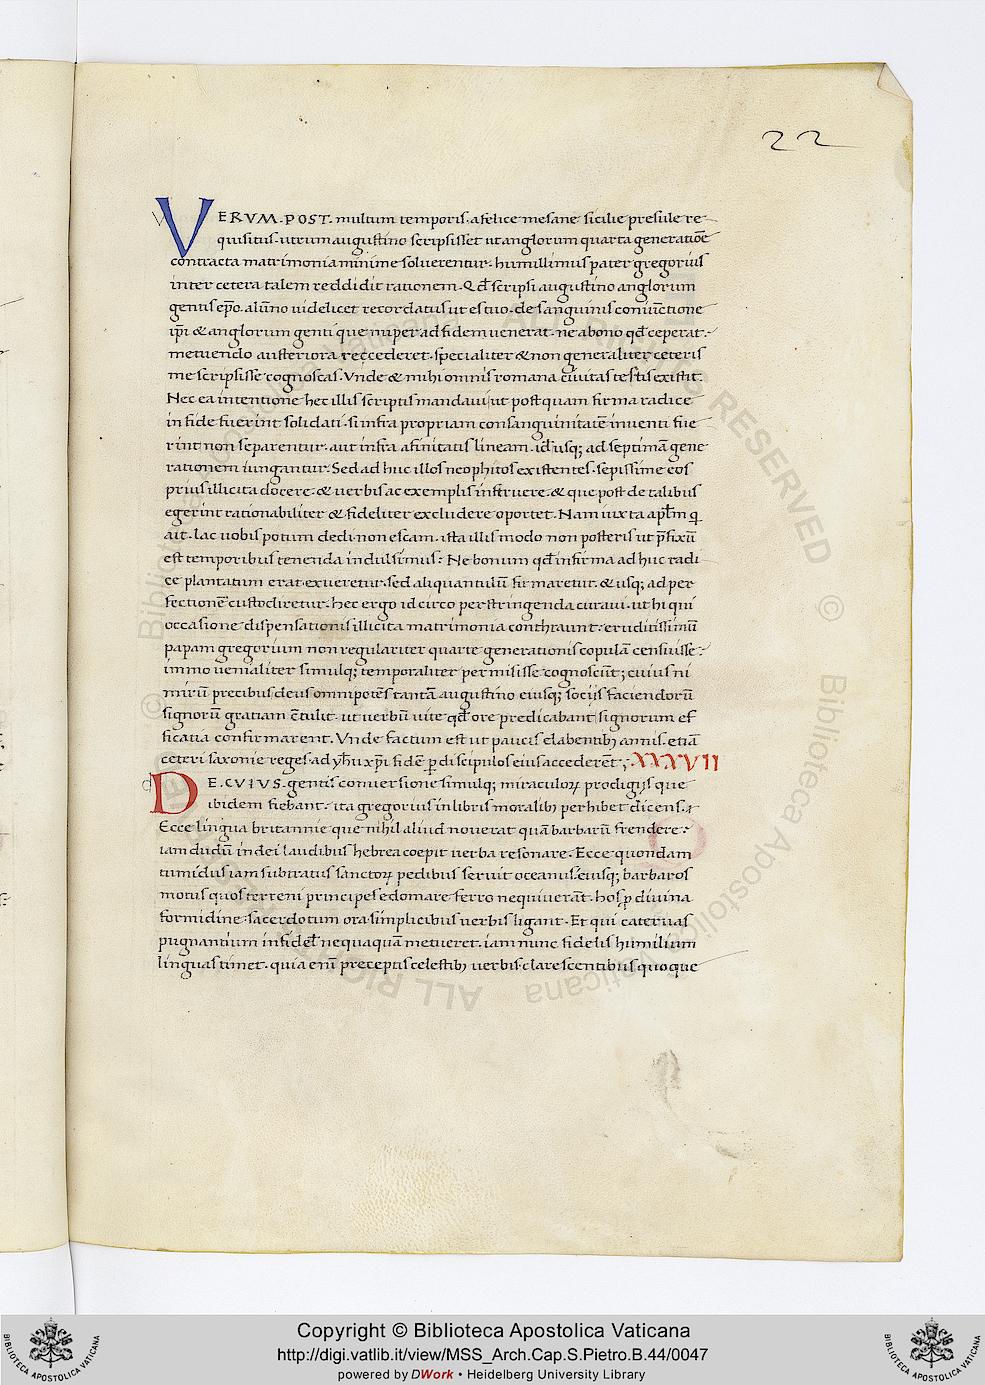 22
VERVM·POST· multum temporis· a felice mesane sicilie presule re-
quisitus· utrum augustino scripsisset ut anglorum quarta generatiōe
contracta matrimonia minime soluerentur· humillimus pater gregorius
inter cetera talem reddidit rationem· Qđ scripsi augustino anglorum
gentis ep̄o· alūno uidelicet recordatus ut es tuo· de sanguinis coniūctione
ip̄i & anglorum genti que nuper ad fidem uenerat· ne a bono qđ ceperat·
metuendo austeriora reccederet· specialiter & non generaliter ceteris
me scripsisse cognoscas· Vnde & mihi omnis romana ciuitas testis existit·
Nec ea intentione hec illis scriptis mandaui ut postquam firma radice
in fide fuerint solidati· si infra propriam consanguinitatē inuenti fue
rint non separentur· aut infra afinitatis lineam· id usq; ad septimā gene
rationem iungantur· Sed ad huc illos neophitos existentes· sepissime eos
prius illicita docere· & uerbis ac exemplis instruere· & que post de talibus
egerint rationabiliter & fideliter excludere oportet· Nam iuxta apl̄m q̄
ait· lac uobis potum dedi· non escam· ista illis modo non posteris ut p̄fixū
est temporibus tenenda indulsimus· Ne bonum qđ infirma ad huc radi
ce plantatum erat· exueretur· sed aliquantulū firmaretur· & usq; ad per
fectionē custodiretur· hec ergo id circo perstringenda curaui· ut hi qui
occasione dispensationis illicita matrimonia conthraunt· eruditissimū
papam gregorium non regulariter quarte generationis copulā censuisse·
immo uenialiter simulq; temporaliter permisisse cognoscāt; cuius ni
mirū precibus deus omnipotēs tantā augustino eiusq; socijs faciendorū
signorū gratiam c̄tulit· ut uerbū uite qđ ore predicabant signorum ef
ficatia confirmarent· Vnde factum est ut paucis elabentib; annis· etiā
ceteri saxonie reges ad yh̄u xp̄i fidē p̄ discipulos eius accederēt; XXXVII
DE·CVIVS· gentis conuersione simulq; miraculoꝝ prodigijs que
ibidem fiebant· ita gregorius in libris moralib; perhibet dicens·
Ecce lingua britannie que nihil aliud nouerat quā barbarū frendere·
iam dudū in dei laudibus hebrea coepit uerba resonare· Ecce quondam
tumidus iam subtratus sanctoꝝ pedibus seruit oceanus· eiusq; barbaros
motus quos terreni principes edomare ferro nequiuerāt· hos p̄ diuina
formidine· sacerdotum ora simplicibus uerbis ligant· Et qui cateruas
pugnantium infidel̄ nequaquā metueret· iam nunc fidelis humilium
linguas timet· quia enī preceptis celestib; uerbis· clarescentibus quoque
© Biblioteca Apostolica Vaticana
ALL RIGHTS RESERVED
Copyright © Biblioteca Apostolica Vaticana
http://digi.vatlib.it/view/MSS_Arch.Cap.S.Pietro.B.44/0047
powered by DWork • Heidelberg University Library
BIBLIOTECA APOSTOLICA VATICANA
BIBLIOTECA APOSTOLICA VATICANA